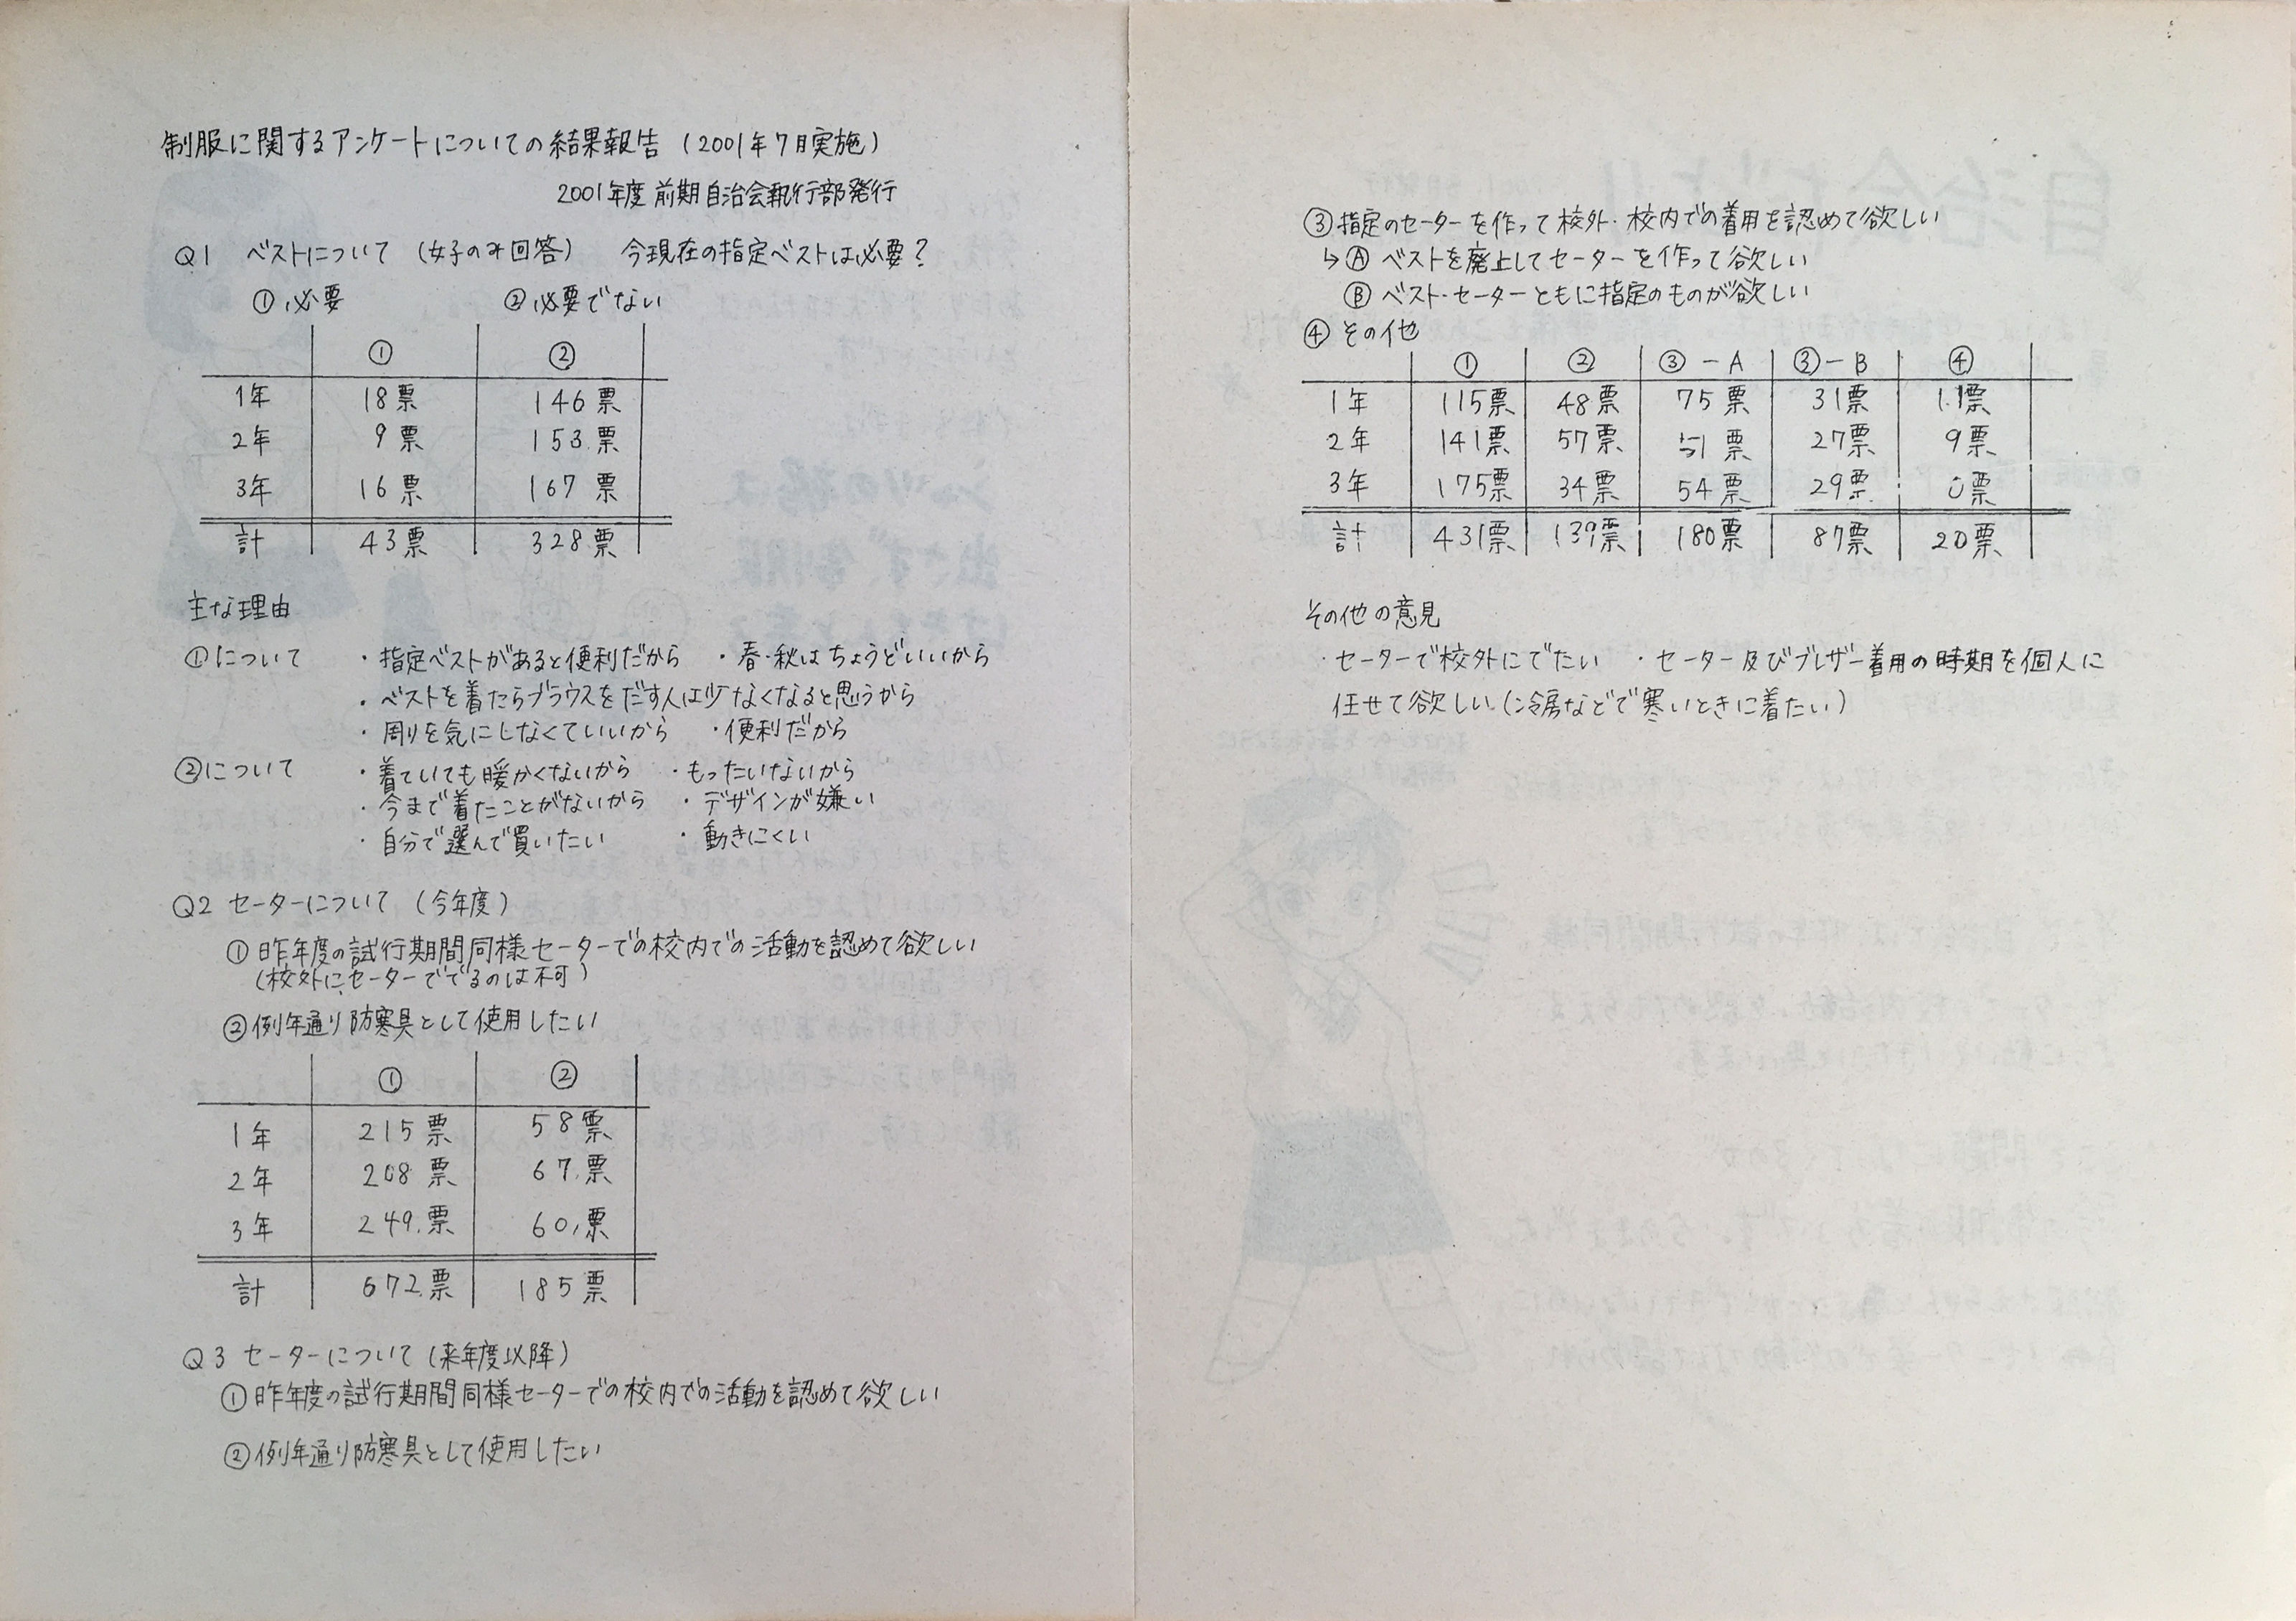 制服に関するアンケートについての結果報告 (2001年7月実施)
2001年度 前期自治会執行部発行
Q1 ベストについて (女子のみ回答) 今現在の指定ベストは必要?
①必要 ②必要でない
① ②
1年 18票 146票
2年 9票 153票
3年 16票 167票
計 43票 328票
主な理由
①について ・指定ベストがあると便利だから ・春・秋はちょうどいいから
・ベストを着たらブラウスをだす人は少なくなると思うから
・周りを気にしなくていいから ・便利だから
②について ・着ていても暖かくないから ・もったいないから
・今まで着たことがないから ・デザインが嫌い
・自分で選んで買いたい ・動きにくい
Q2 セーターについて (今年度)
①昨年度の試行期間同様セーターでの校内での活動を認めて欲しい
(校外にセーターででるのは不可)
②例年通り防寒具として使用したい
① ②
1年 215票 58票
2年 208票 67票
3年 249票 60票
計 672票 185票
Q3 セーターについて (来年度以降)
①昨年度の試行期間同様セーターでの校内での活動を認めて欲しい
②例年通り防寒具として使用したい
③指定のセーターを作って校外・校内での着用を認めて欲しい
↳Ⓐ ベストを廃止してセーターを作って欲しい
Ⓑ ベスト・セーターともに指定のものが欲しい
④ その他
① ② ③-A ③-B ④
1年 115票 48票 75票 31票 11票
2年 141票 57票 51票 27票 9票
3年 175票 34票 54票 29票 0票
計 431票 139票 180票 87票 20票
その他の意見
・セーターで校外にでたい ・セーター及びブレザー着用の時期を個人に
任せて欲しい(冷房などで寒いときに着たい)